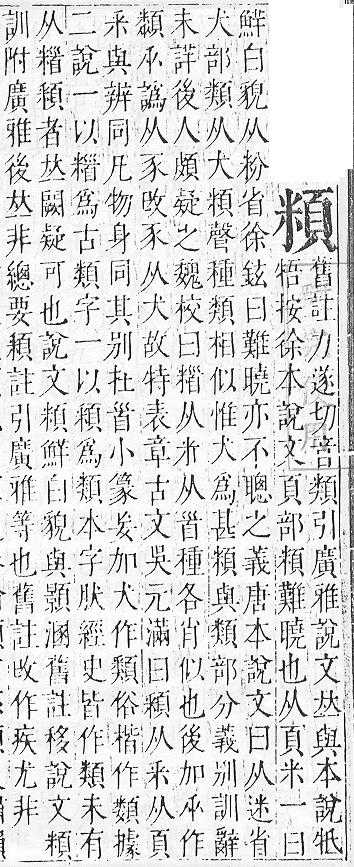 頪
舊註力遂切音類引廣雅說文𠀤與本說牴
牾按徐本說文頁部頪難曉也从頁米一曰
鮮白貌从粉省徐鉉曰難曉亦不聰之義唐本說文曰从迷省
犬部類从犬頪聲種類相似惟犬爲甚頪與類部分義别訓辭
未詳後人頗疑之魏校曰从米从𦣻種各肖似也後加作
類譌从豕改豕从犬故特表章古文吳元滿曰頪从釆从頁
釆與辨同凡物身同其别在𦣻小篆妄加犬作類俗楷作類據
二說一以爲古類字一以頪爲類本字肰經史皆作類未有
从頪者𠀤闕疑可也說文頪鮮白貌與顥溷舊註移說文頪
訓附廣雅後𠀤非總要頪註引廣雅等也舊註改作疾尤非